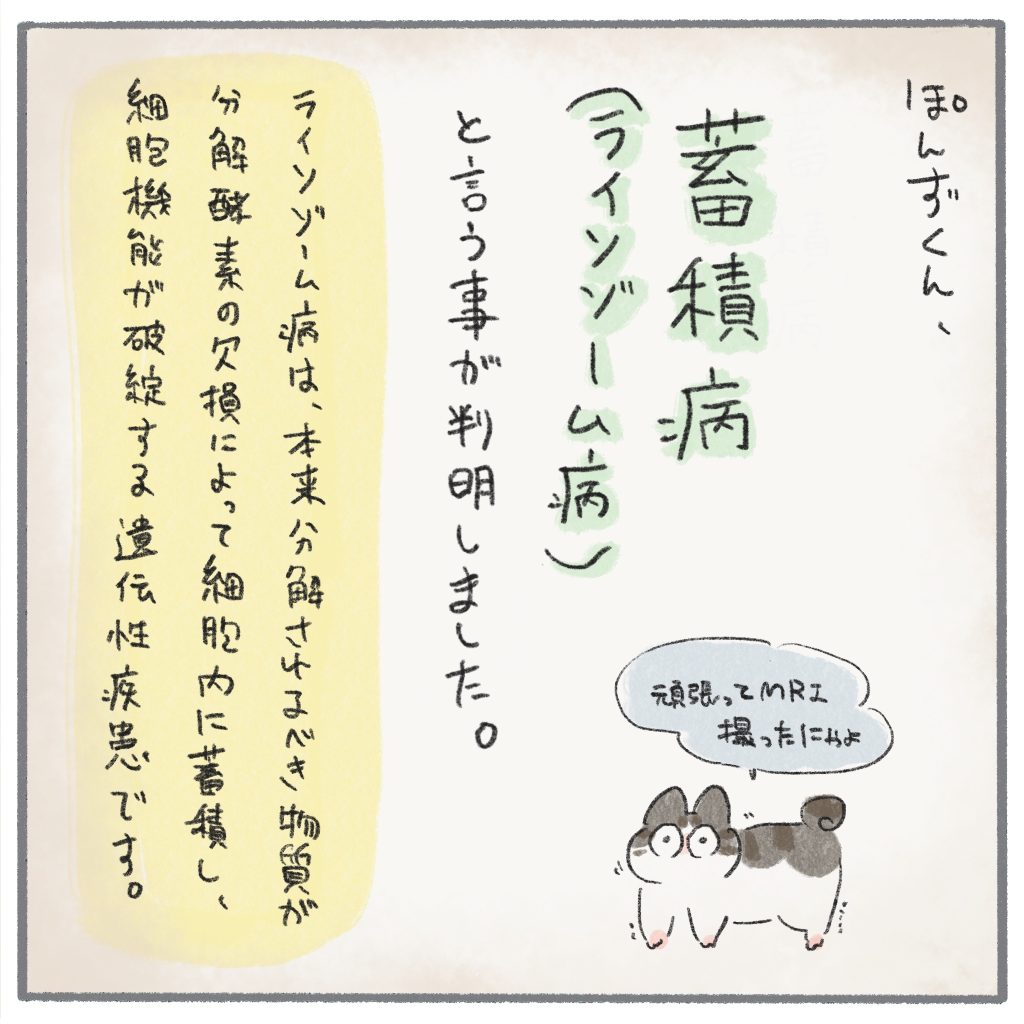 ぽんずくん、
蓄積病
(ライソゾーム病)
と言う事が判明しました。
ライソゾーム病は、本来分解されるべき物質が
分解酵素の欠損によって細胞内に蓄積し、
細胞機能が破綻する遺伝性疾患です。
頑張ってMRI
撮ったにゃよ